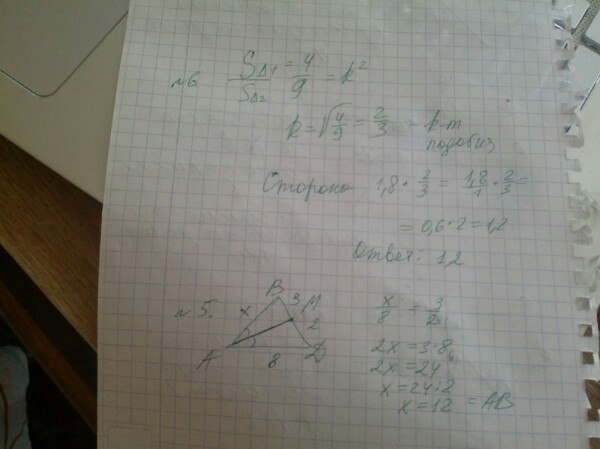 №6 SΔ1/SΔ2 = 4/9 = k²
k = √4/9 = 2/3 - k-т
подобия
Сторона 1,8 · 2/3 = 1,8/1 · 2/3 =
= 0,6 · 2 = 1,2
Ответ: 1,2
№5.
B
3 M
x
2
A
8
D
x/8 = 3/2
2x = 3·8
2x = 24
x = 24:2
x = 12 = AB